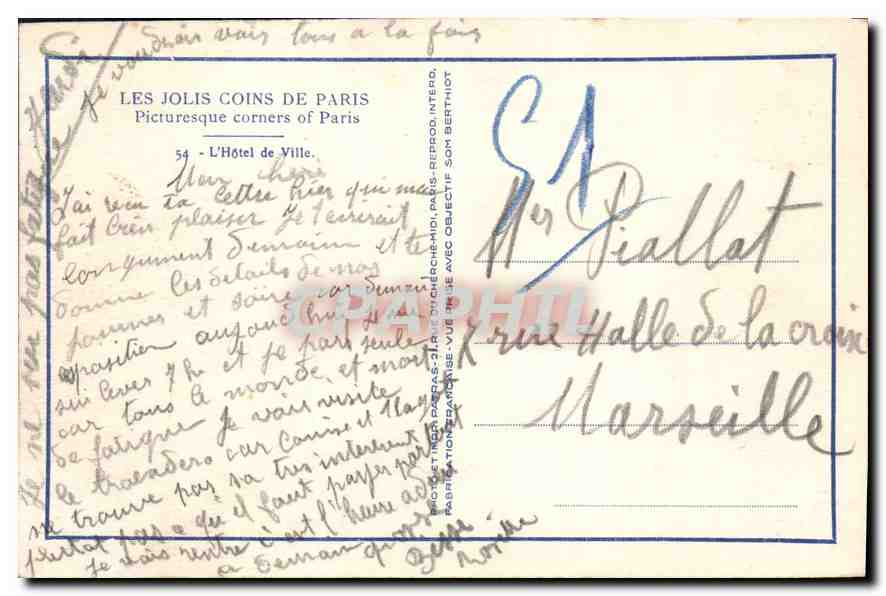 Je voudrais vais tous a la fois
Jeudi
Je ne veu pas
LES JOLIS COINS DE PARIS
Picturesque corners of Paris
54 - L'Hôtel de Ville.
Mon
J'ai recu ta lettre hier qui ma
fait bien plaisir Je t'ecrirait
longument demain et te
donne les details de nos
journes et soire car demain
exposition aujourd'hui je me
suis lever 7 h et je pars seule
car tous le monde et mort
de fatigue Je vais visite
le trocadero car Louise et
ne trouve pas sa tres interessent
pas a qu'il faut payer partout
Je vais rentre c'est l'heure
a demain
PHOTO ET IMPR. PATRAS - 21, RUE DU CHERCHE-MIDI, PARIS - REPROD. INTERD.
FABRICATION FRANÇAISE - VUE PRISE AVEC OBJECTIF SOM BERTHIOT
51
Piallat
7 rue Halle de la croix
Marseille
CPAPHIL